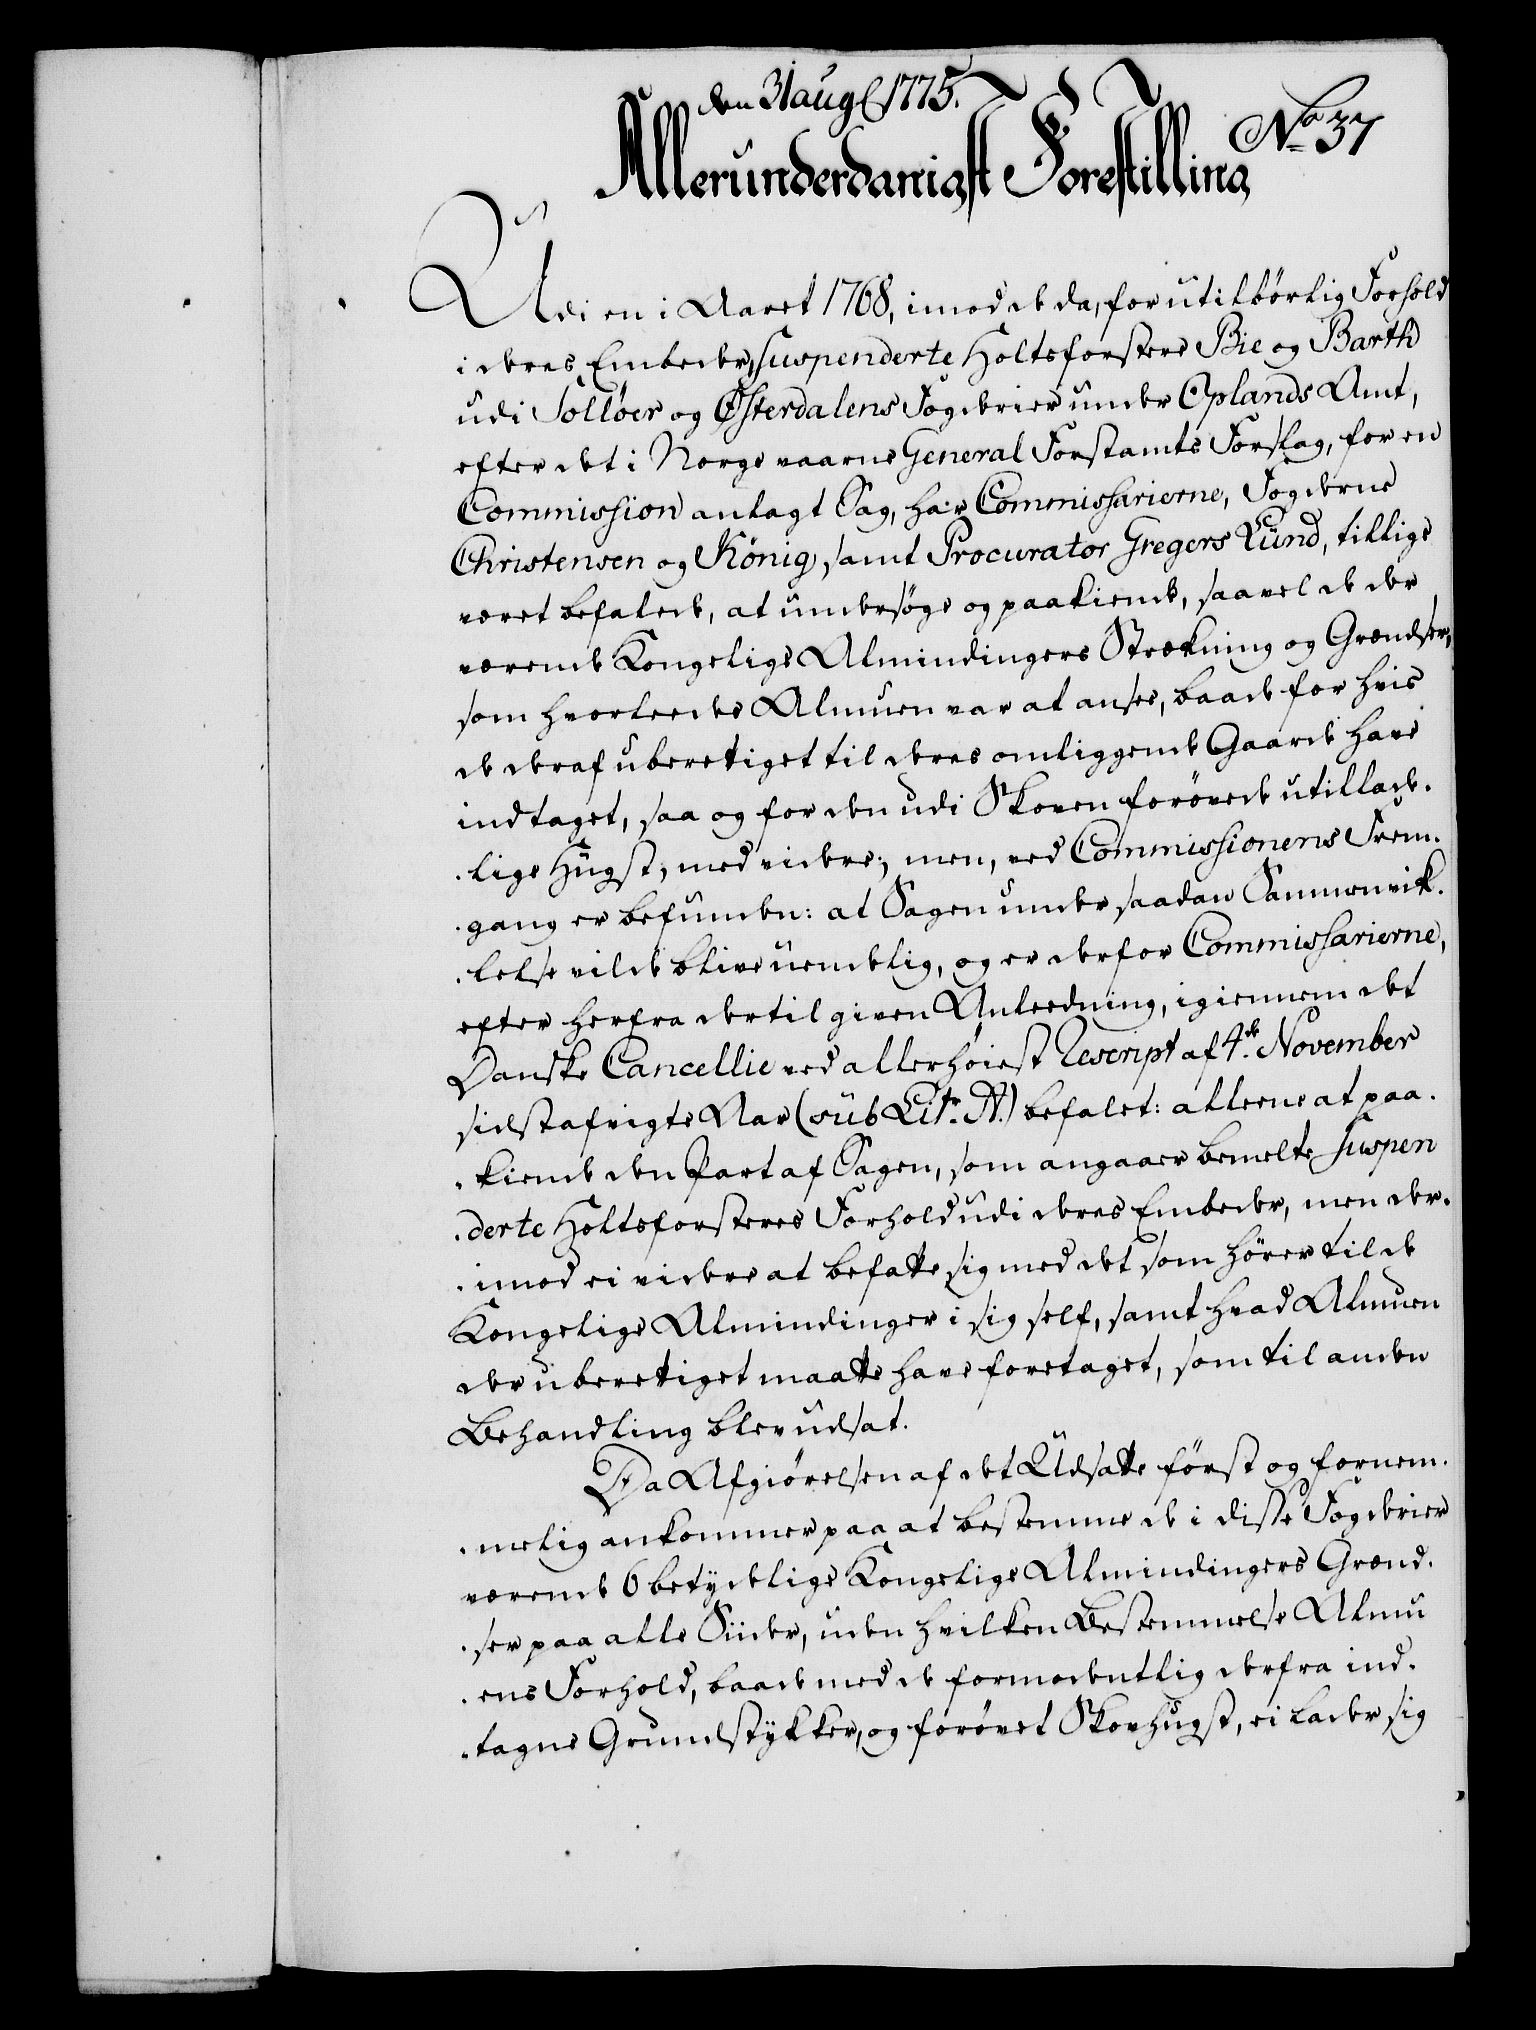 den 31 aug 1775.
No 37
Allerunderdanigst Forestilling
Udi en i Aaret 1768, imod de da, for utilbørlig Forhold
i deres Embeder, suspenderte Holtsforstere Bie og Barth
udi Solløer og Østerdalens Fogderier under Oplands Amt,
efter det i Norge værne General Forstamts Forslag, for en
Commission anlagt Sag, har Commissarierne, Fogderne
Christensen og König, samt Procurator Gregers Lund, tillige
været befalede, at undersøge og paakiende, saavel de der
værende Kongelige Almindingers Strækning og Grændser,
som hvorledes Almuen var at ansee, baade for hvis
de deraf uberetiget til deres omliggende Gaarde have
indtaget, saa og for den udi Skoven forøvede utillade-
lige Hugst, med videre; men, ved Commissionens Frem-
gang er befunden: at Sagen under saadan Sammenvik-
lelse vilde blive uendelig, og er derfor Commissarierne,
efter herfra dertil given Anleedning, igiennem det
Danske Cancellie ved allerhøiest Rescript af 4de November
sidstafvigte Aar (sub Litr. A.) befalet: alleene at paa-
kiende den Part af Sagen, som angaaer bemelte suspen
derte Holtsforsteres Forhold udi deres Embeder, men der-
imod ei videre at befatte sig med det som hører til de
Kongelige Almindinger i sig self, samt hvad Almuen
der uberetiget maatte have foretaget, som til anden
Behandling blev udsat.
Da Afgiørelsen af det Udsatte først og fornem-
melig ankommer paa at bestemme de i disse Fogderier
værende 6 betydelige Kongelige Almindingers Grænd-
ser paa alle Siider, uden hvilken Bestemmelse Almu
ens Forhold, baade med de formodentlig derfra ind-
tagne Grundstykker, og forøvet Skovhugst, ei lader sig